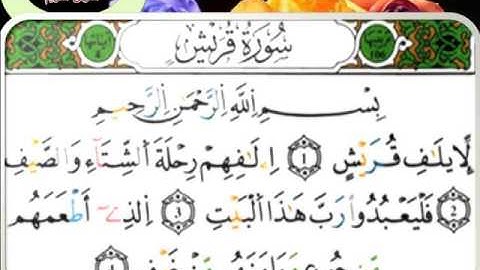 سُورَةُ قُرَيْشٍ
بِسْمِ اللَّهِ الرَّحْمَٰنِ الرَّحِيمِ
لِإِيلَافِ قُرَيْشٍ ١ إِيلَافِهِمْ رِحْلَةَ الشِّتَاءِ وَالصَّيْفِ
٢ فَلْيَعْبُدُوا رَبَّ هَٰذَا الْبَيْتِ ٣ الَّذِي أَطْعَمَهُم